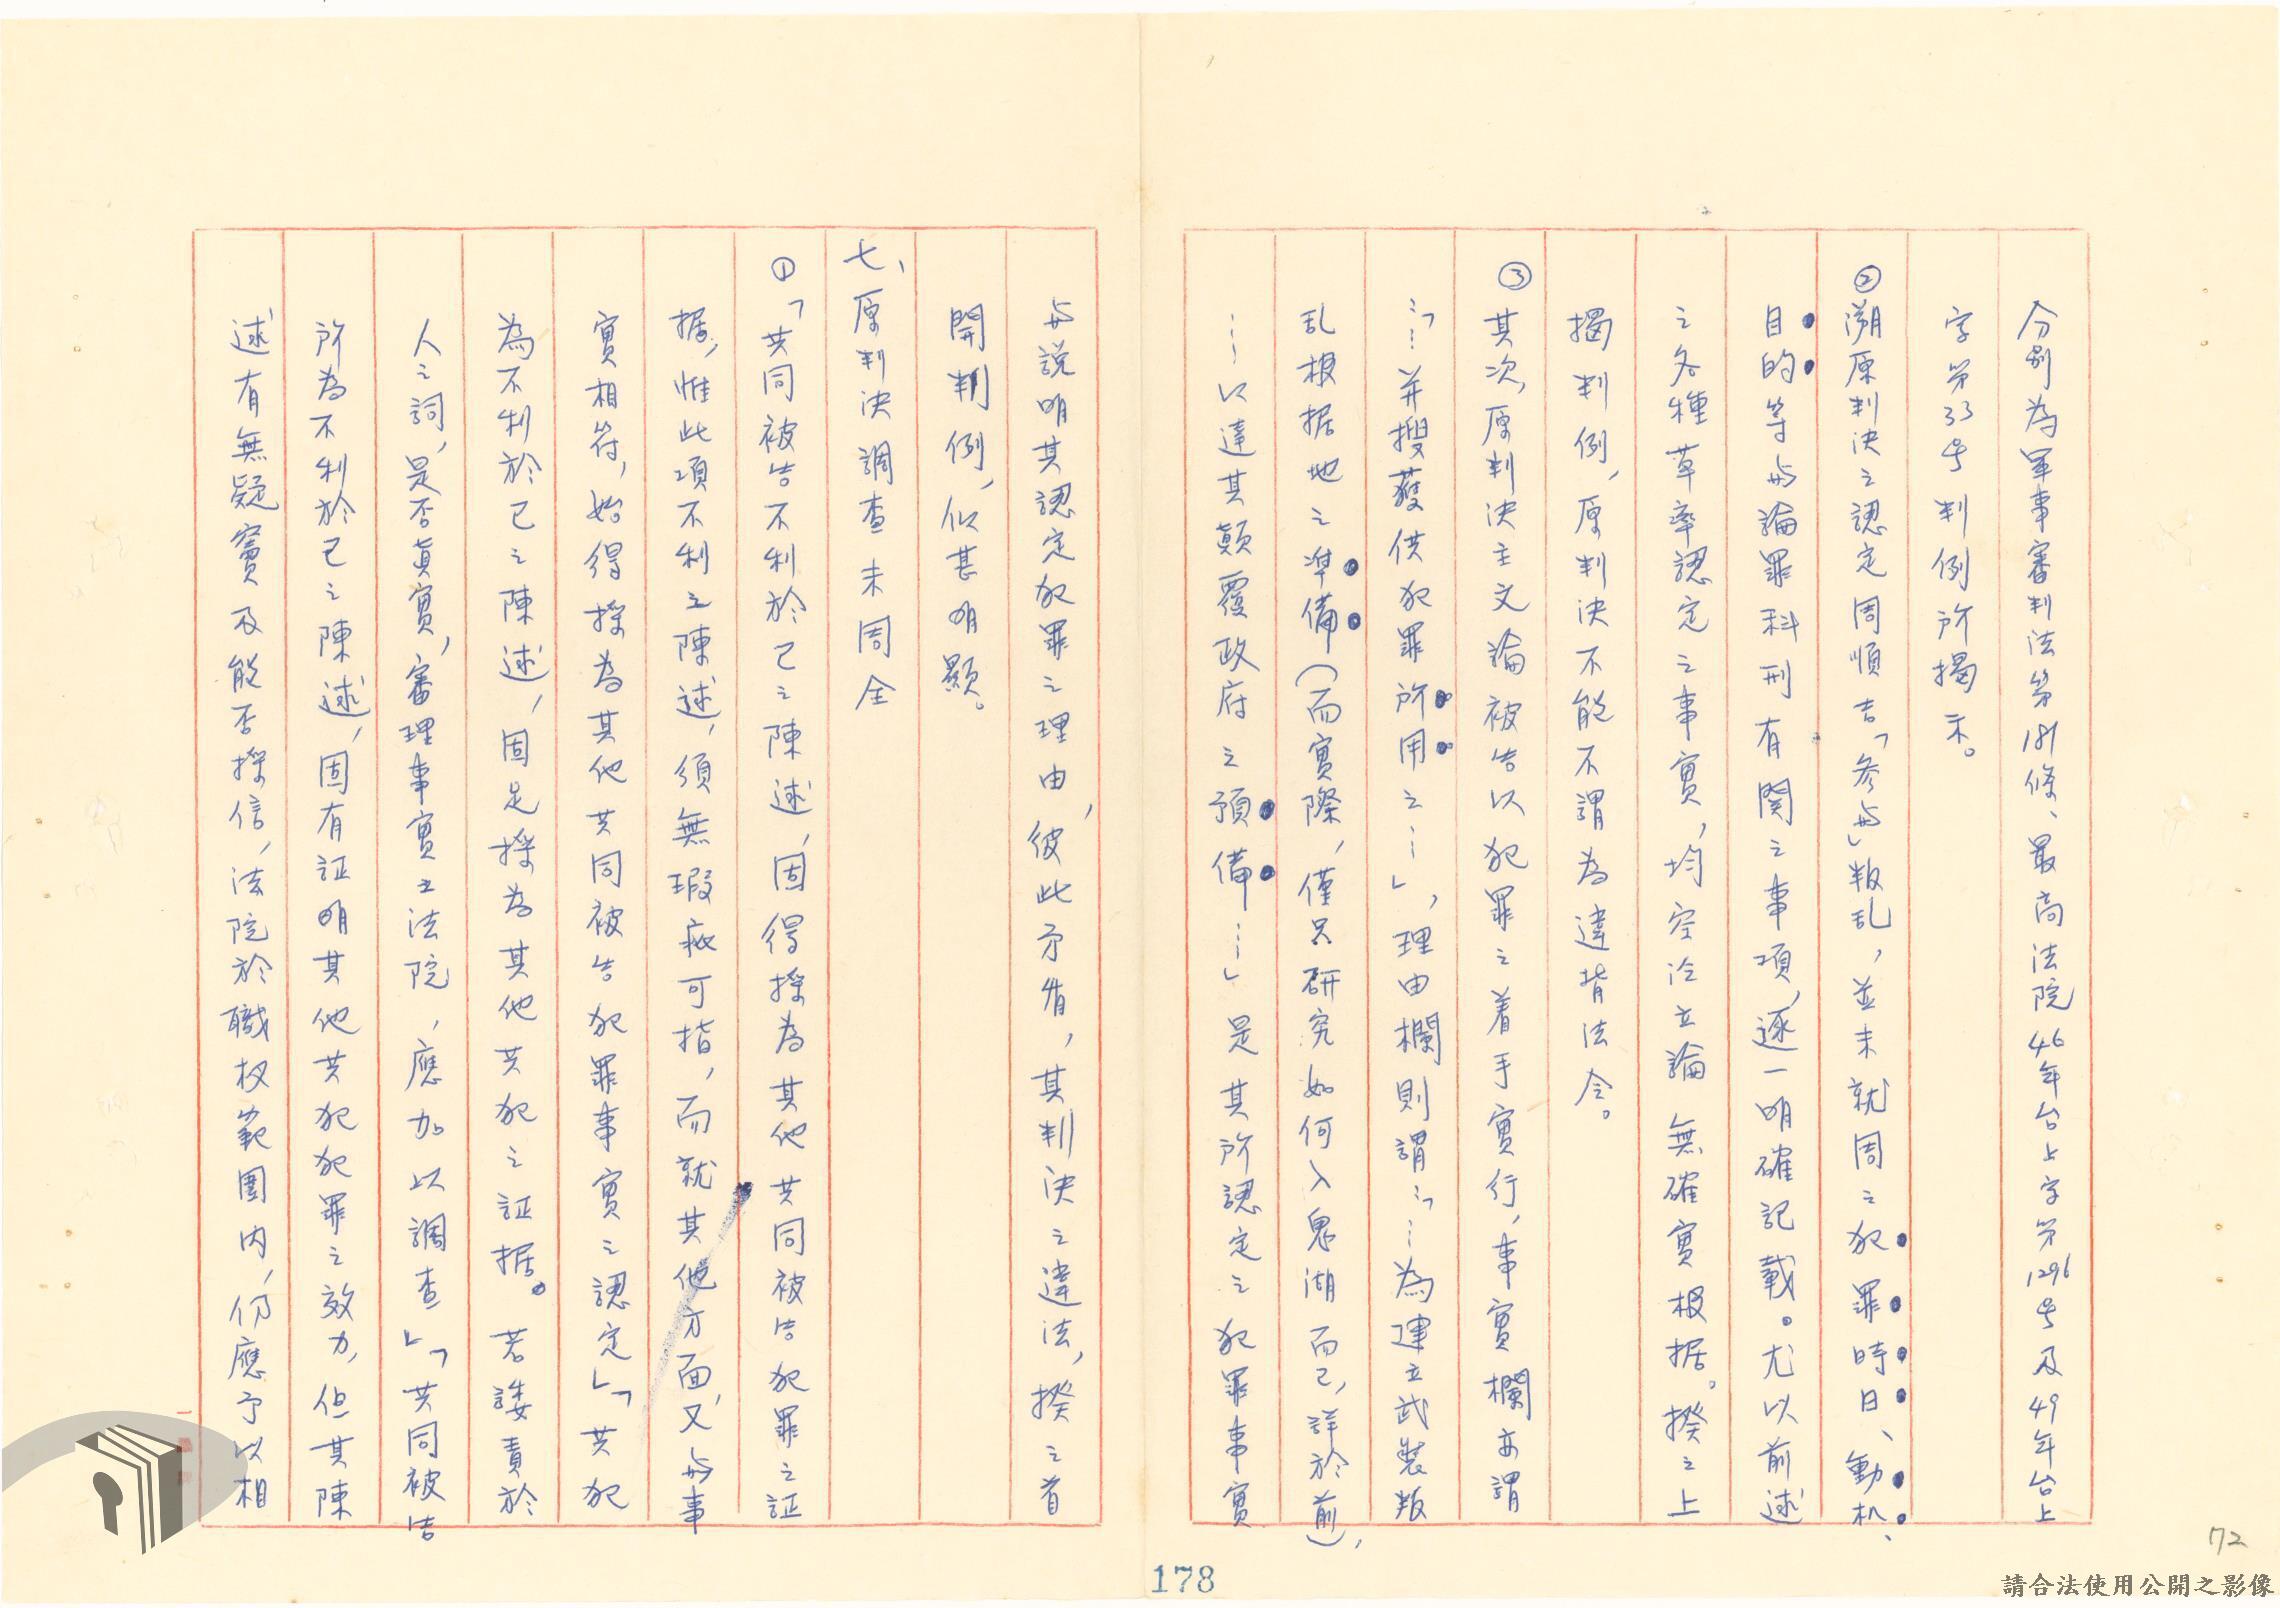 分別為軍事審判法第181條、最高法院46年台上字第1296号及49年台上
字第33号判例所揭示。
②溯原判決之認定周順吉「參与」叛乱，並未就周之犯罪時日、動机、
目的等与論罪科刑有関之事項，逐一明確記載。尤以前述
之各種草率認定之事實，均空泛立論無確實根据。揆之上
揭判例，原判決不能不謂為違背法令。
③其次，原判決主文論被告以犯罪之着手實行，事實欄亦謂
：「…并搜獲供犯罪所用之…」，理由欄則謂：「…為建立武裝叛
乱根据地之準備（而實際，僅只研究如何入鬼湖而已，詳於前），
…以達其顛覆政府之預備…」是其所認定之犯罪事實
与說明其認定犯罪之理由，彼此矛盾，其判決之違法，揆之首
開判例，似甚明顯。
七、原判決調查未周全
①「共同被告不利於己之陳述，固得採為其他共同被告犯罪之証
据，惟此項不利之陳述，須無瑕疵可指，而就其他方面，又与事
實相符，始得採為其他共同被告犯罪事實之認定」「共犯
為不利於己之陳述，固足採為其他共犯之証据。若諉責於
人之詞，是否真實，審理事實之法院，應加以調查」「共同被告
所為不利於己之陳述，固有証明其他共犯犯罪之效力，但其陳
述有無疑竇及能否採信，法院於職权範圍內，仍應予以相
178
172
請合法使用公開之影像